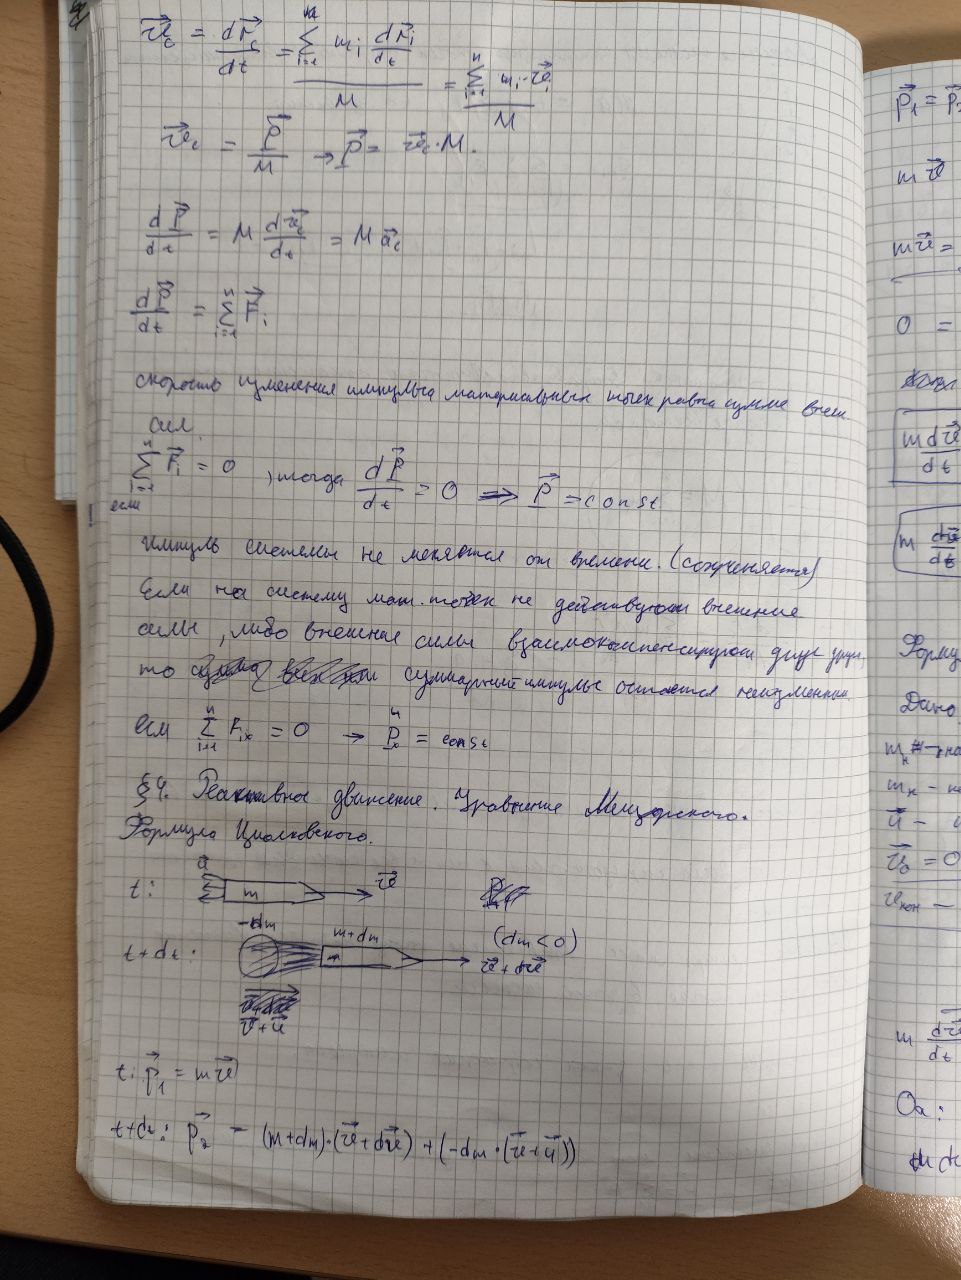 v⃗c = dr⃗c/dt = (Σ(i=1..n) mi dr⃗i/dt)/M = (Σ(i=1..n) mi·v⃗i)/M
v⃗c = P⃗/M → P⃗ = v⃗c·M.
dP⃗/dt = M dv⃗c/dt = M a⃗c
dP⃗/dt = Σ(i=1..n) F⃗i
скорость изменения импульса материальных точек равна сумме внеш.
сил.
если Σ(i=1..n) F⃗i = 0 , тогда dP⃗/dt = 0 ⟹ P⃗ = const
Импульс системы не меняется от времени. (сохраняется)
Если на систему мат. точек не действуют внешние
силы, либо внешние силы взаимокомпенсируют друг друга,
то суммарный импульс остаётся неизменным
если Σ(i=1..n) Fix = 0 → Px = const
§4. Реактивное движение. Уравнение Мещерского.
Формула Циолковского.
t: u⃗ m v⃗
t+dt: -dm m+dm (dm < 0)
v⃗+dv⃗
v⃗+u⃗
t: p⃗1 = mv⃗
t+dt: p⃗2 = (m+dm)·(v⃗+dv⃗) + (-dm·(v⃗+u⃗))
p⃗1 = p⃗2
mv⃗
mv⃗ =
0 =
m dv⃗/dt
m dv⃗/dt
Форму
Дано
mн -
mк -
u⃗ -
v⃗0 = 0
vкон -
m dv⃗/dt
Ox: